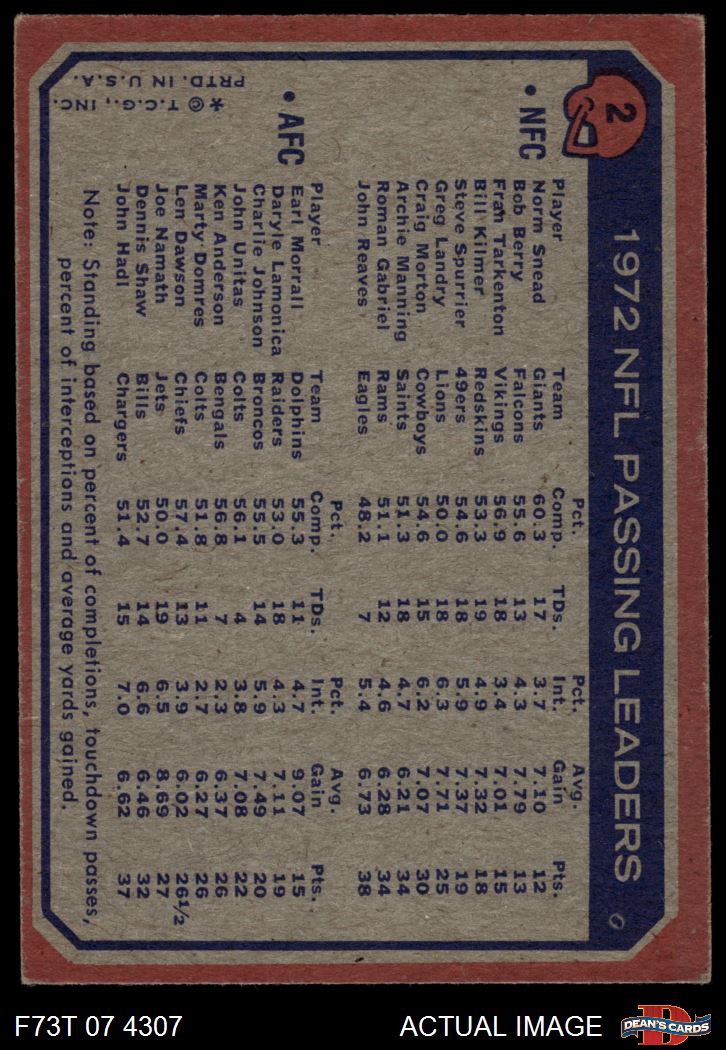 2
1972 NFL PASSING LEADERS
• NFC
Pct. Pct. Avg.
Player Team Comp. TDs. Int. Gain Pts.
Norm Snead Giants 60.3 17 3.7 7.10 12
Bob Berry Falcons 55.6 13 4.3 7.79 13
Fran Tarkenton Vikings 56.9 18 3.4 7.01 15
Bill Kilmer Redskins 53.3 19 4.9 7.32 18
Steve Spurrier 49ers 54.6 18 5.9 7.37 19
Greg Landry Lions 50.0 18 6.3 7.71 25
Craig Morton Cowboys 54.6 15 6.2 7.07 30
Archie Manning Saints 51.3 18 4.7 6.21 34
Roman Gabriel Rams 51.1 12 4.6 6.28 34
John Reaves Eagles 48.2 7 5.4 6.73 38
• AFC
Pct. Pct. Avg.
Player Team Comp. TDs. Int. Gain Pts.
Earl Morrall Dolphins 55.3 11 4.7 9.07 15
Daryle Lamonica Raiders 53.0 18 4.3 7.11 19
Charlie Johnson Broncos 55.5 14 5.9 7.49 20
John Unitas Colts 56.1 4 3.8 7.08 22
Ken Anderson Bengals 56.8 7 2.3 6.37 26
Marty Domres Colts 51.8 11 2.7 6.27 26
Len Dawson Chiefs 57.4 13 3.9 6.02 26½
Joe Namath Jets 50.0 19 6.5 8.69 27
Dennis Shaw Bills 52.7 14 6.6 6.46 32
John Hadl Chargers 51.4 15 7.0 6.62 37
Note: Standing based on percent of completions, touchdown passes,
percent of interceptions and average yards gained.
* © T.C.G., INC.
PRTD. IN U.S.A.
F73T 07 4307
ACTUAL IMAGE
D
DEAN'S CARDS